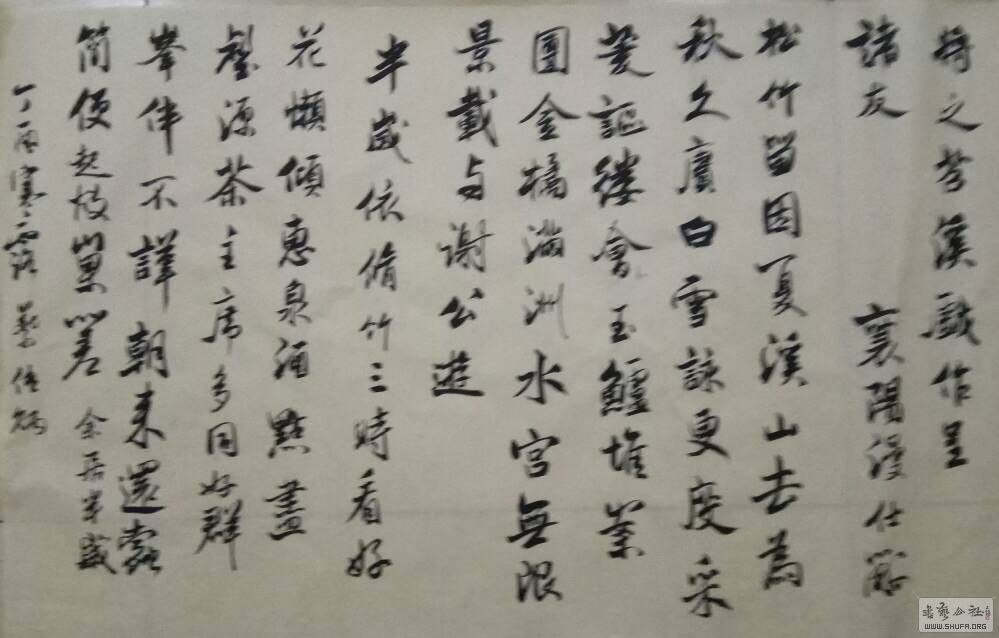 將之苕溪戲作呈
諸友 襄陽漫仕黻
松竹留因夏溪山去為
秋久賡白雪詠更度采
菱謳縷會玉鱸堆案
團金橘滿洲水宮無限
景載与謝公遊
半歲依脩竹三時看好
花懶傾惠泉酒點盡
壑源茶主席多同好群
峯伴不譁朝來還蠹
簡便起故巢嗟 余居半歲
丁酉寒露
书艺公社
WWW.SHUFA.ORG